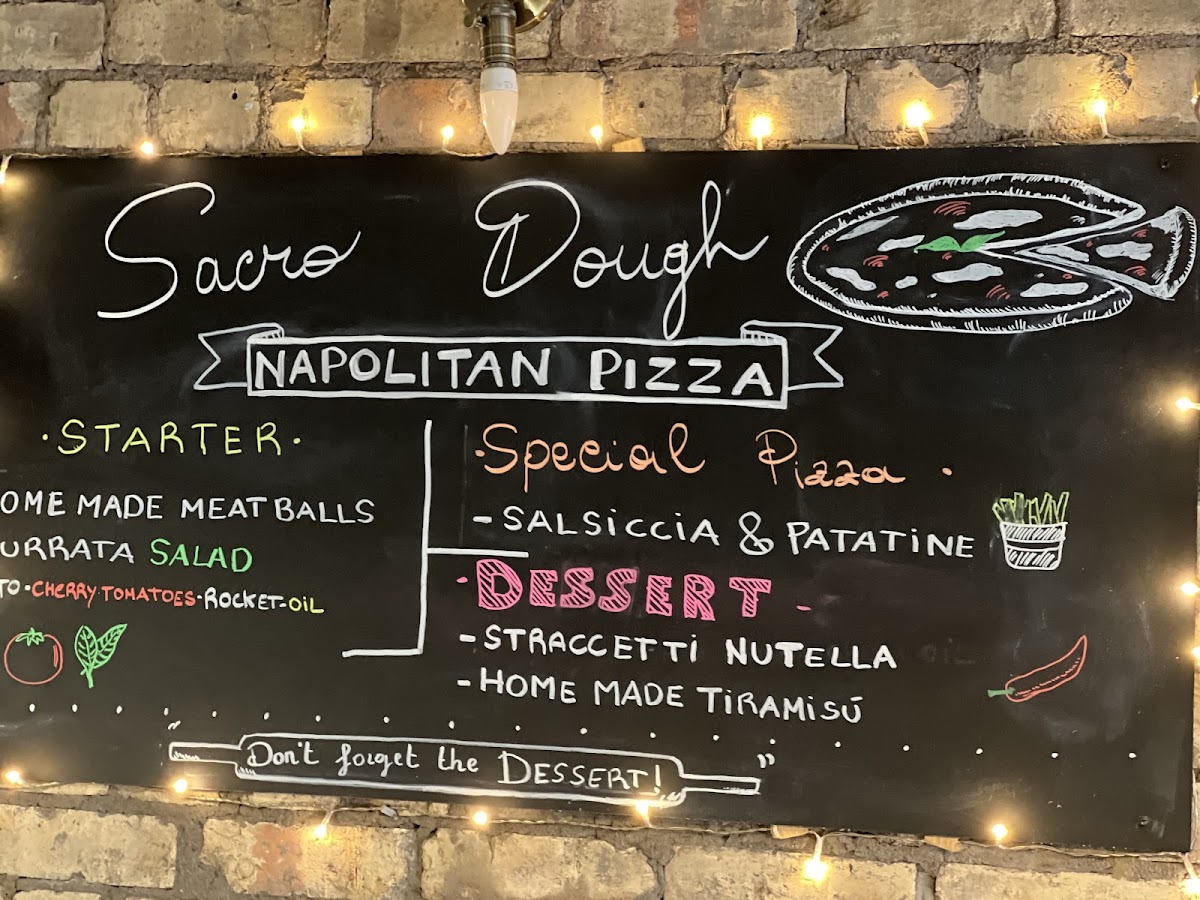 Sacro Dough
NAPOLITAN PIZZA
·STARTER·
OME MADE MEAT BALLS
URRATA SALAD
TO·CHERRY TOMATOES·ROCKET-OIL
·Special Pizza·
-SALSICCIA & PATATINE
·DESSERT-
-STRACCETTI NUTELLA
-HOME MADE TIRAMISÚ
"Don't forget the DESSERT!"